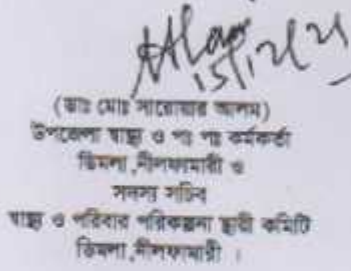 15/12/21
(ডাঃ মোঃ সারোয়ার আলম)
উপজেলা স্বাস্থ্য ও পঃ পঃ কর্মকর্তা
ডিমলা,নীলফামারী ও
সদস্য সচিব
স্বাস্থ্য ও পরিবার পরিকল্পনা স্থায়ী কমিটি
ডিমলা,নীলফামারী ।